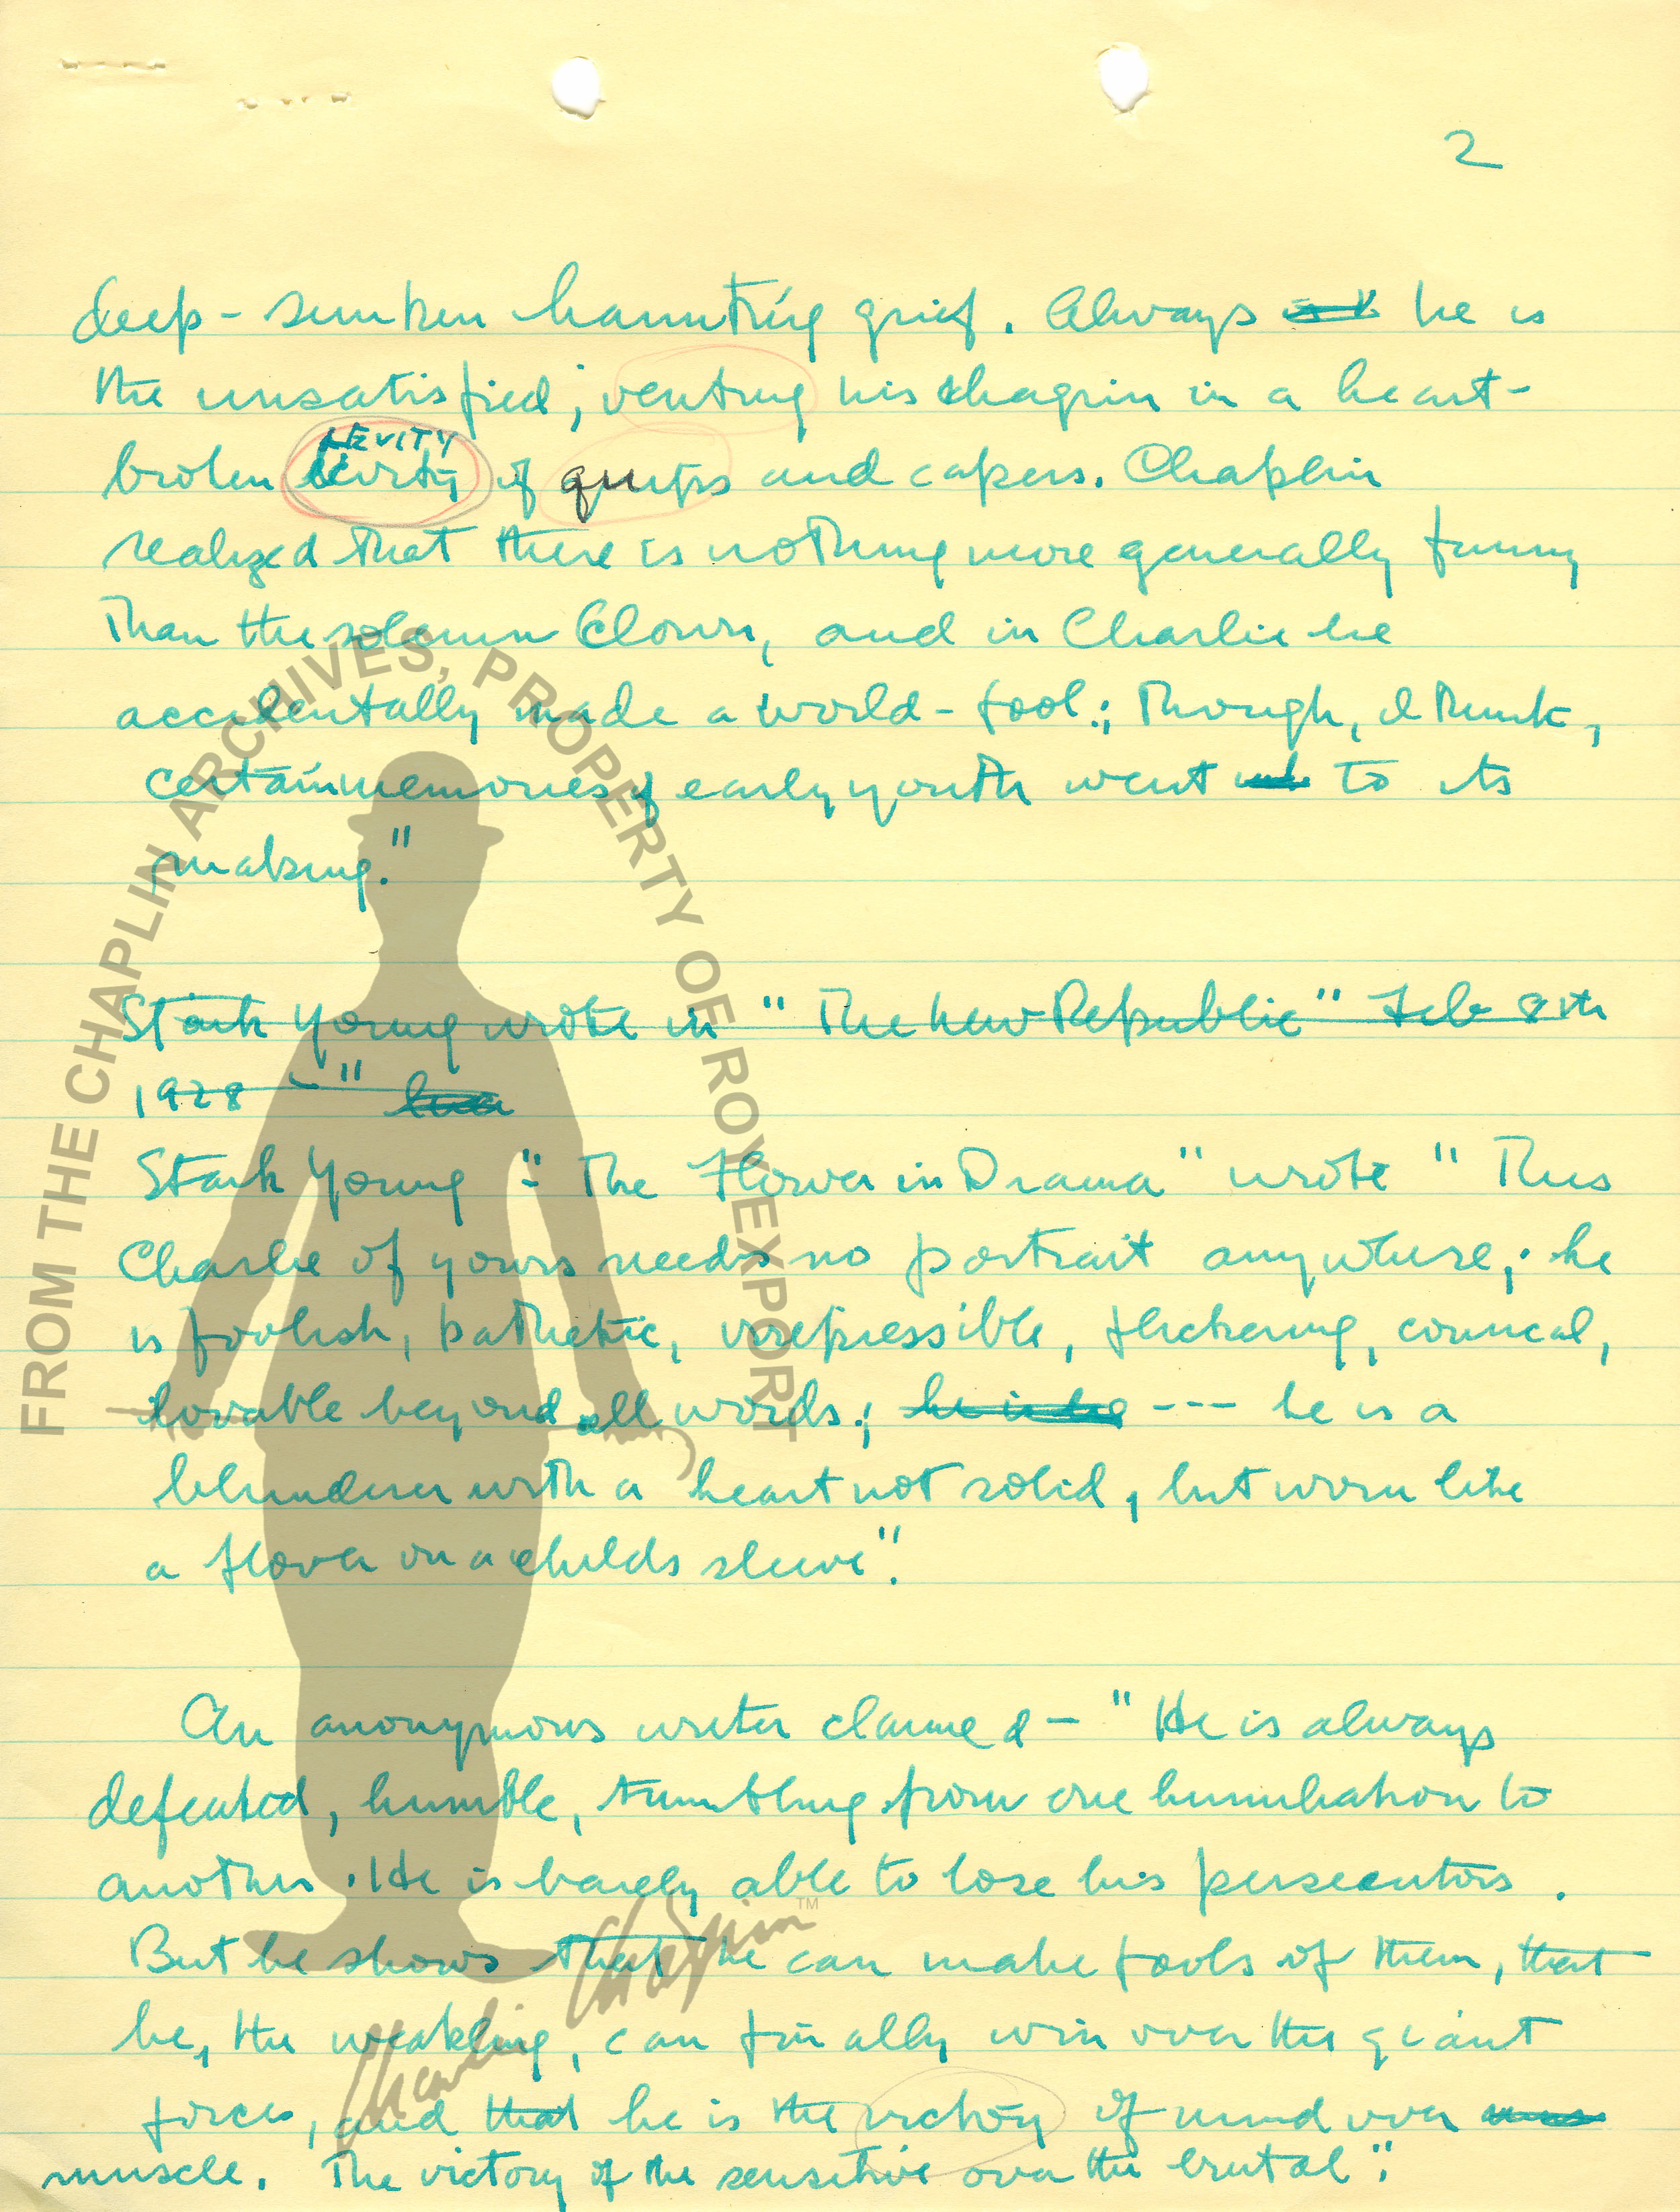 2
deep-sunken haunting grief. Always he is
the unsatisfied; venting his chagrin in a heart-
broken LEVITY levity of quips and capers. Chaplin
realized that there is nothing more generally funny
Than the solemn Clown, and in Charlie he
accidentally made a world-fool.; Though, I think,
certain memories of early youth went to its
making."
Stark Young wrote in "The New Republic" Feb 8th
1928 – "
Stark Young "The Flower in Drama" wrote "This
Charlie of yours needs no portrait anywhere; he
is foolish, pathetic, irrepressible, flickering, comical,
lovable beyond all words; he is --- he is a
blunderer with a heart not solid, but worn like
a flower on a childs sleeve".
An anonymous writer claimed – "He is always
defeated, humble, tumbling from one humiliation to
another. He is barely able to lose his persecutors.
But he shows that he can make fools of them, that
he, the weakling, can finally win over the giant
forces, and that he is the victory of mind over
muscle. The victory of the sensitive over the brutal".
FROM THE CHAPLIN ARCHIVES, PROPERTY OF ROY EXPORT
Charlie Chaplin™